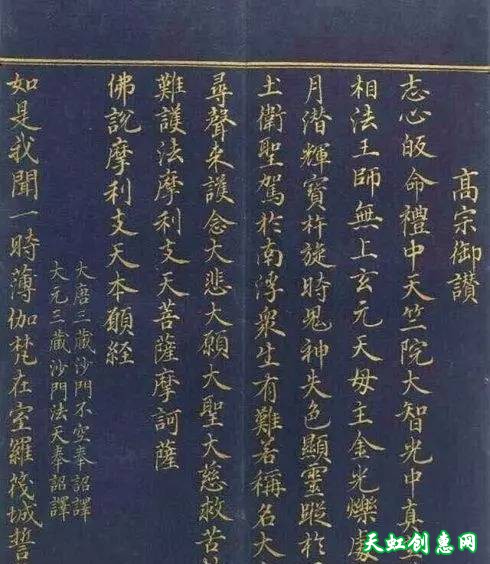 高宗御讃
志心皈命禮中天竺院大智光中真
相法王師無上玄元天母王金光爍處
月潜輝寳杵旋時鬼神失色顯靈蹤於
土衛聖駕於南浮衆生有難若稱名大
尋聲来護念大悲大願大聖大慈救苦
難護法摩利支天菩薩摩訶薩
佛説摩利支天本願經
大唐三藏沙門不空奉詔譯
大元三藏沙門法天奉詔譯
如是我聞一時薄伽梵在室羅筏城誓
天虹创意网